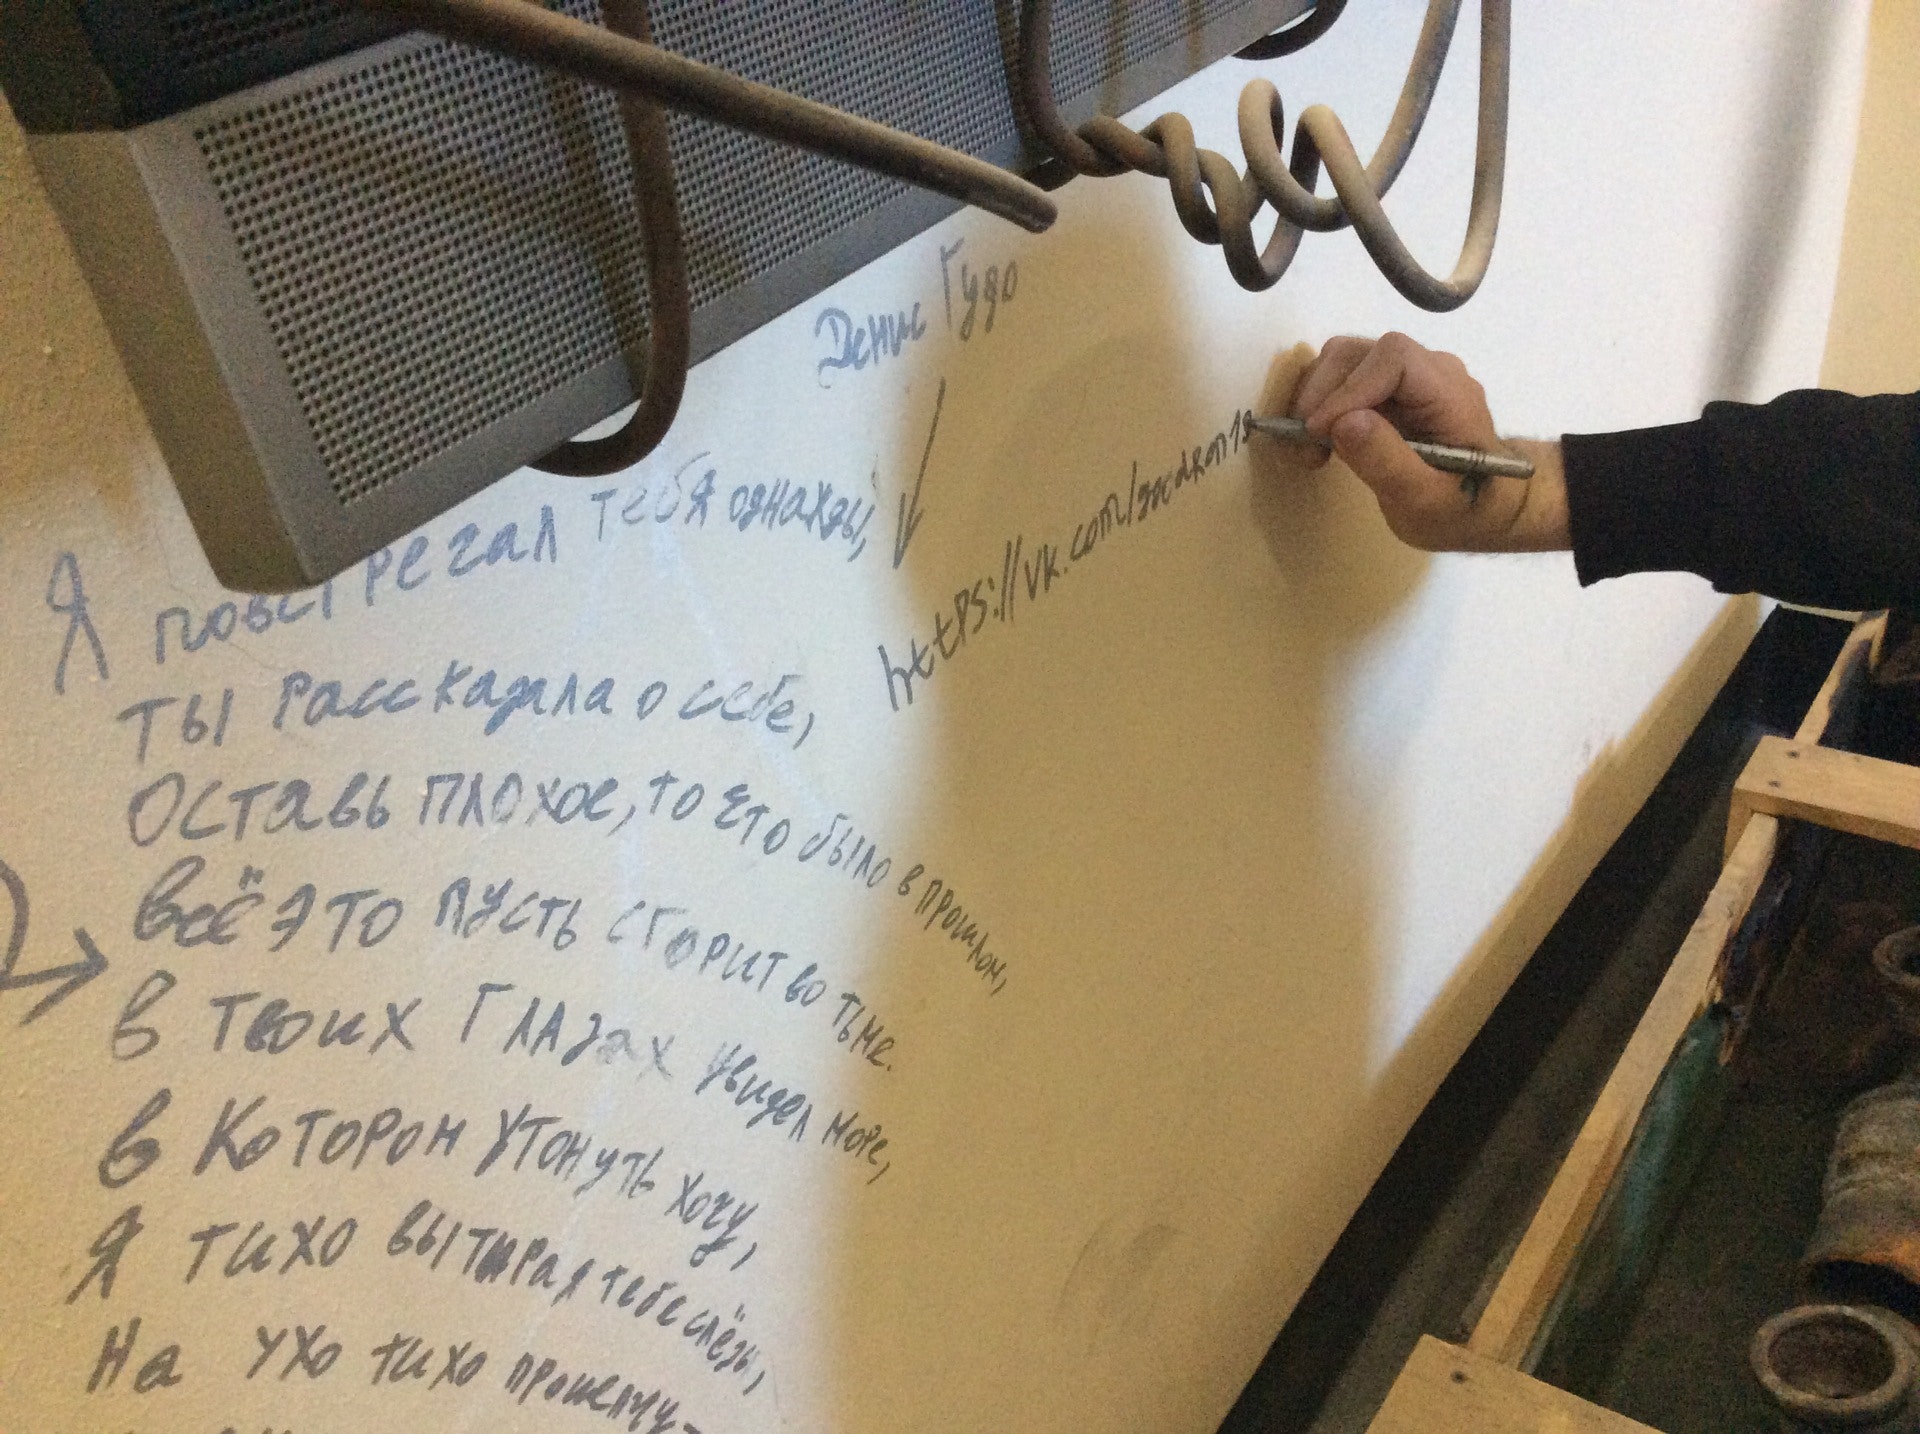 Денис Гудо
https://vk.com/
Я повстречал тебя однажды,
ты рассказала о себе,
Оставь плохое, то что было в прошлом,
всё это пусть сгорит во тьме.
в твоих глазах увидел море,
в котором утонуть хочу,
Я тихо вытирая тебе слёзы,
На ухо тихо прошепчу-